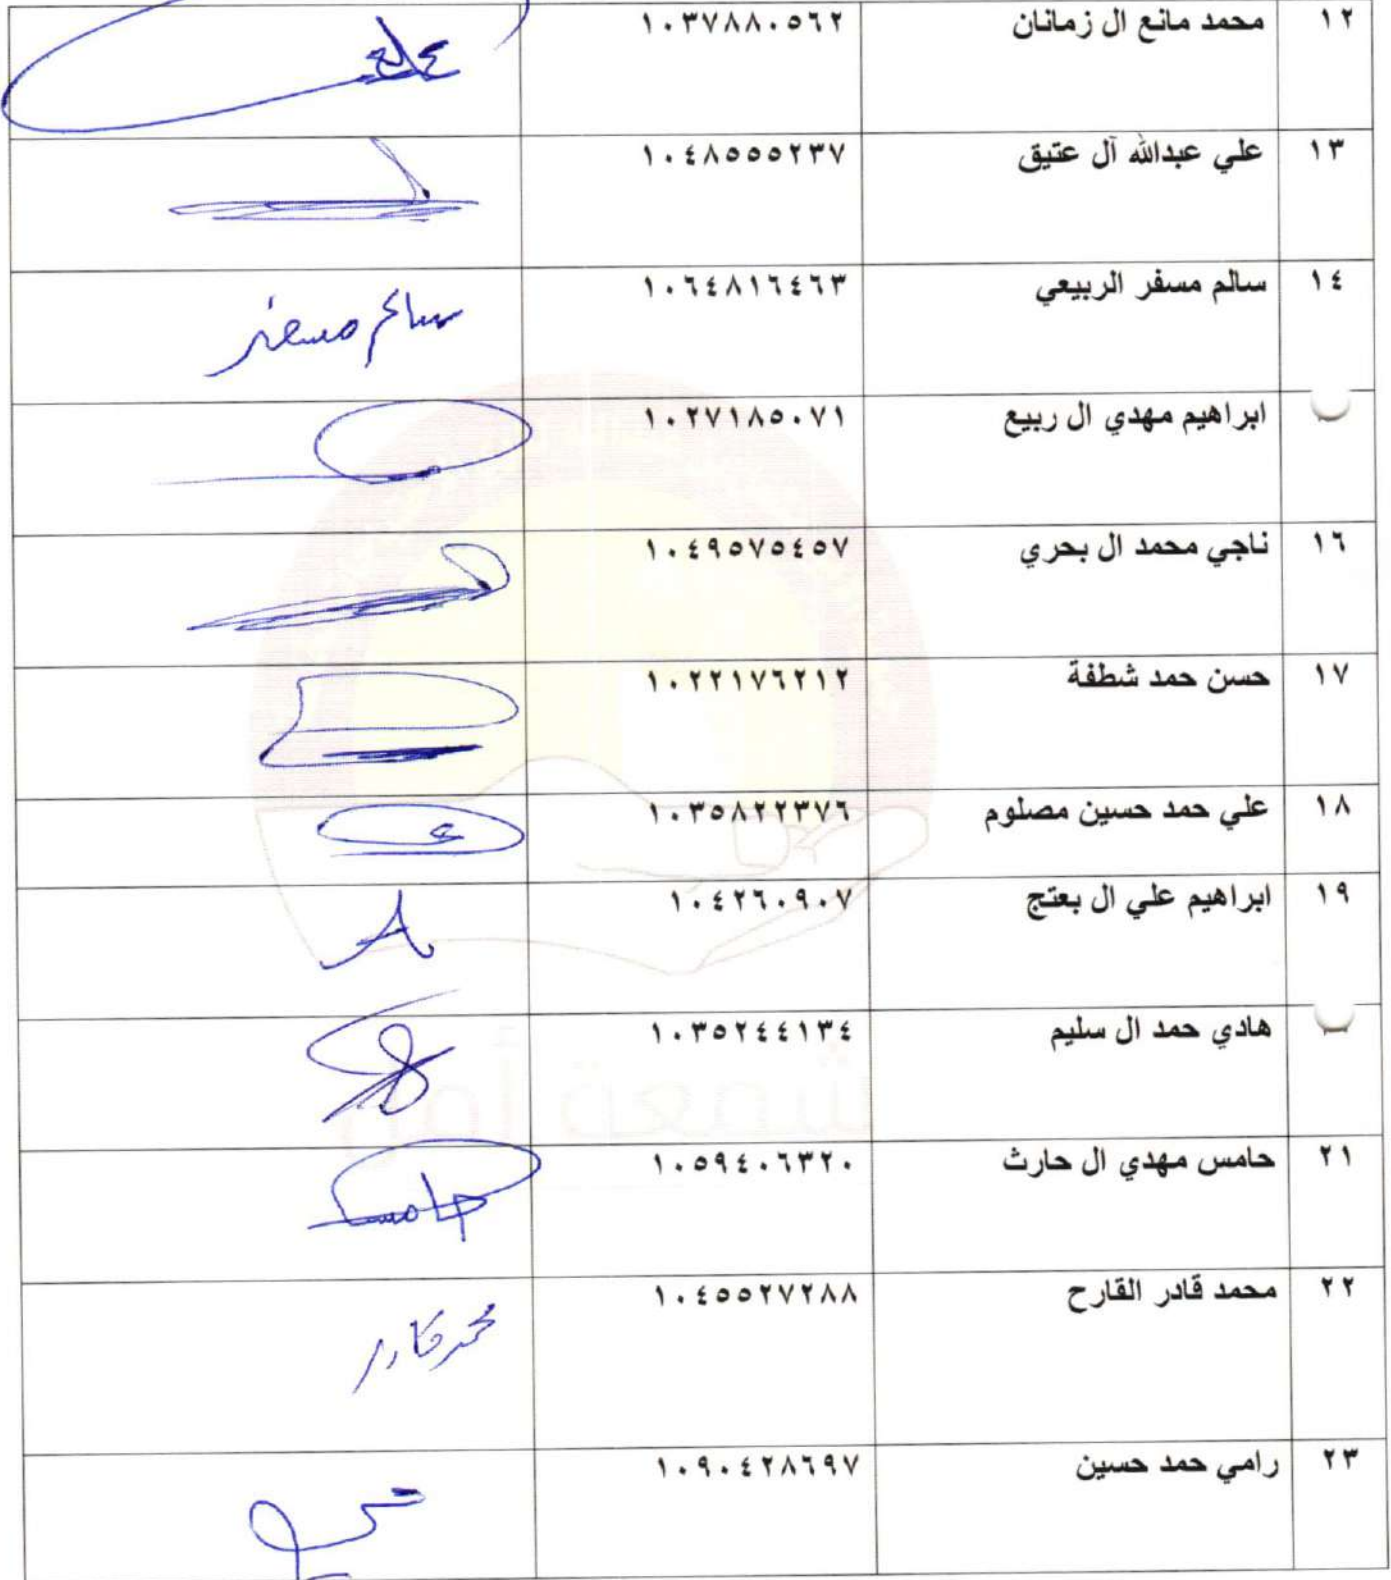 ١٢ محمد مانع ال زمانان ١٠٣٧٨٨٠٥٦٢
١٣ علي عبدالله آل عتيق ١٠٤٨٥٥٥٢٣٧
١٤ سالم مسفر الربيعي ١٠٦٤٨١٦٤٦٣ سالم مسفر
ابراهيم مهدي ال ربيع ١٠٢٧١٨٥٠٧١
١٦ ناجي محمد ال بحري ١٠٤٩٥٧٥٤٥٧
١٧ حسن حمد شطفة ١٠٢٢١٧٦٢١٢
١٨ علي حمد حسين مصلوم ١٠٣٥٨٢٢٣٧٦
١٩ ابراهيم علي ال بعتج ١٠٤٢٦٠٩٠٧
هادي حمد ال سليم ١٠٣٥٢٤٤١٣٤
٢١ حامس مهدي ال حارث ١٠٥٩٤٠٦٣٢٠
٢٢ محمد قادر القارح ١٠٤٥٥٢٧٢٨٨ محمد قادر
٢٣ رامي حمد حسين ١٠٩٠٤٢٨٦٩٧
شمعة أمل